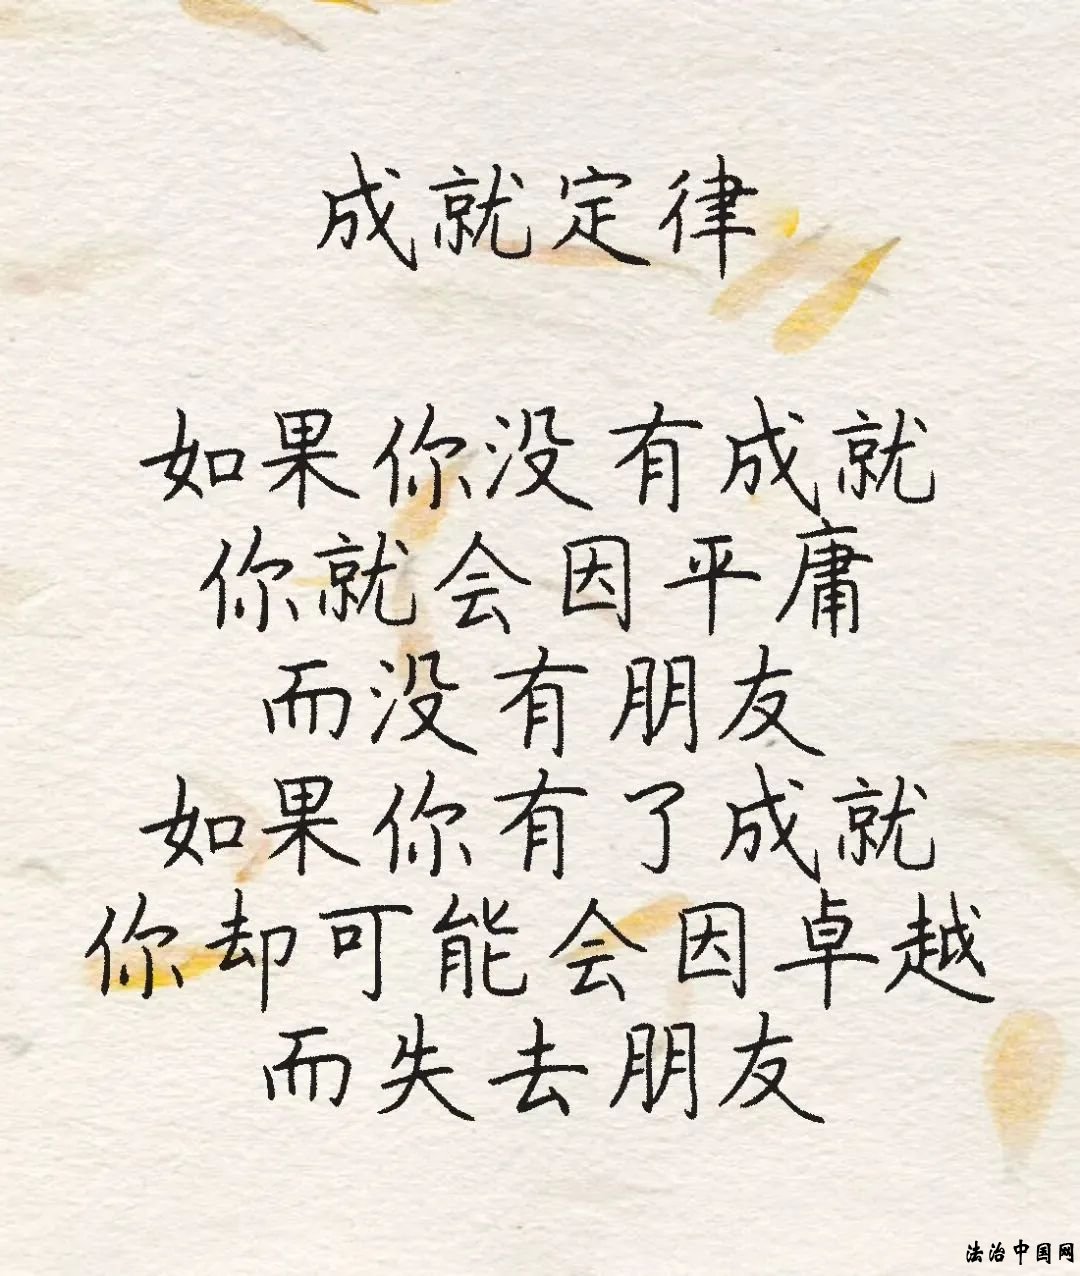 成就定律
如果你没有成就
你就会因平庸
而没有朋友
如果你有了成就
你却可能会因卓越
而失去朋友
法治中国网